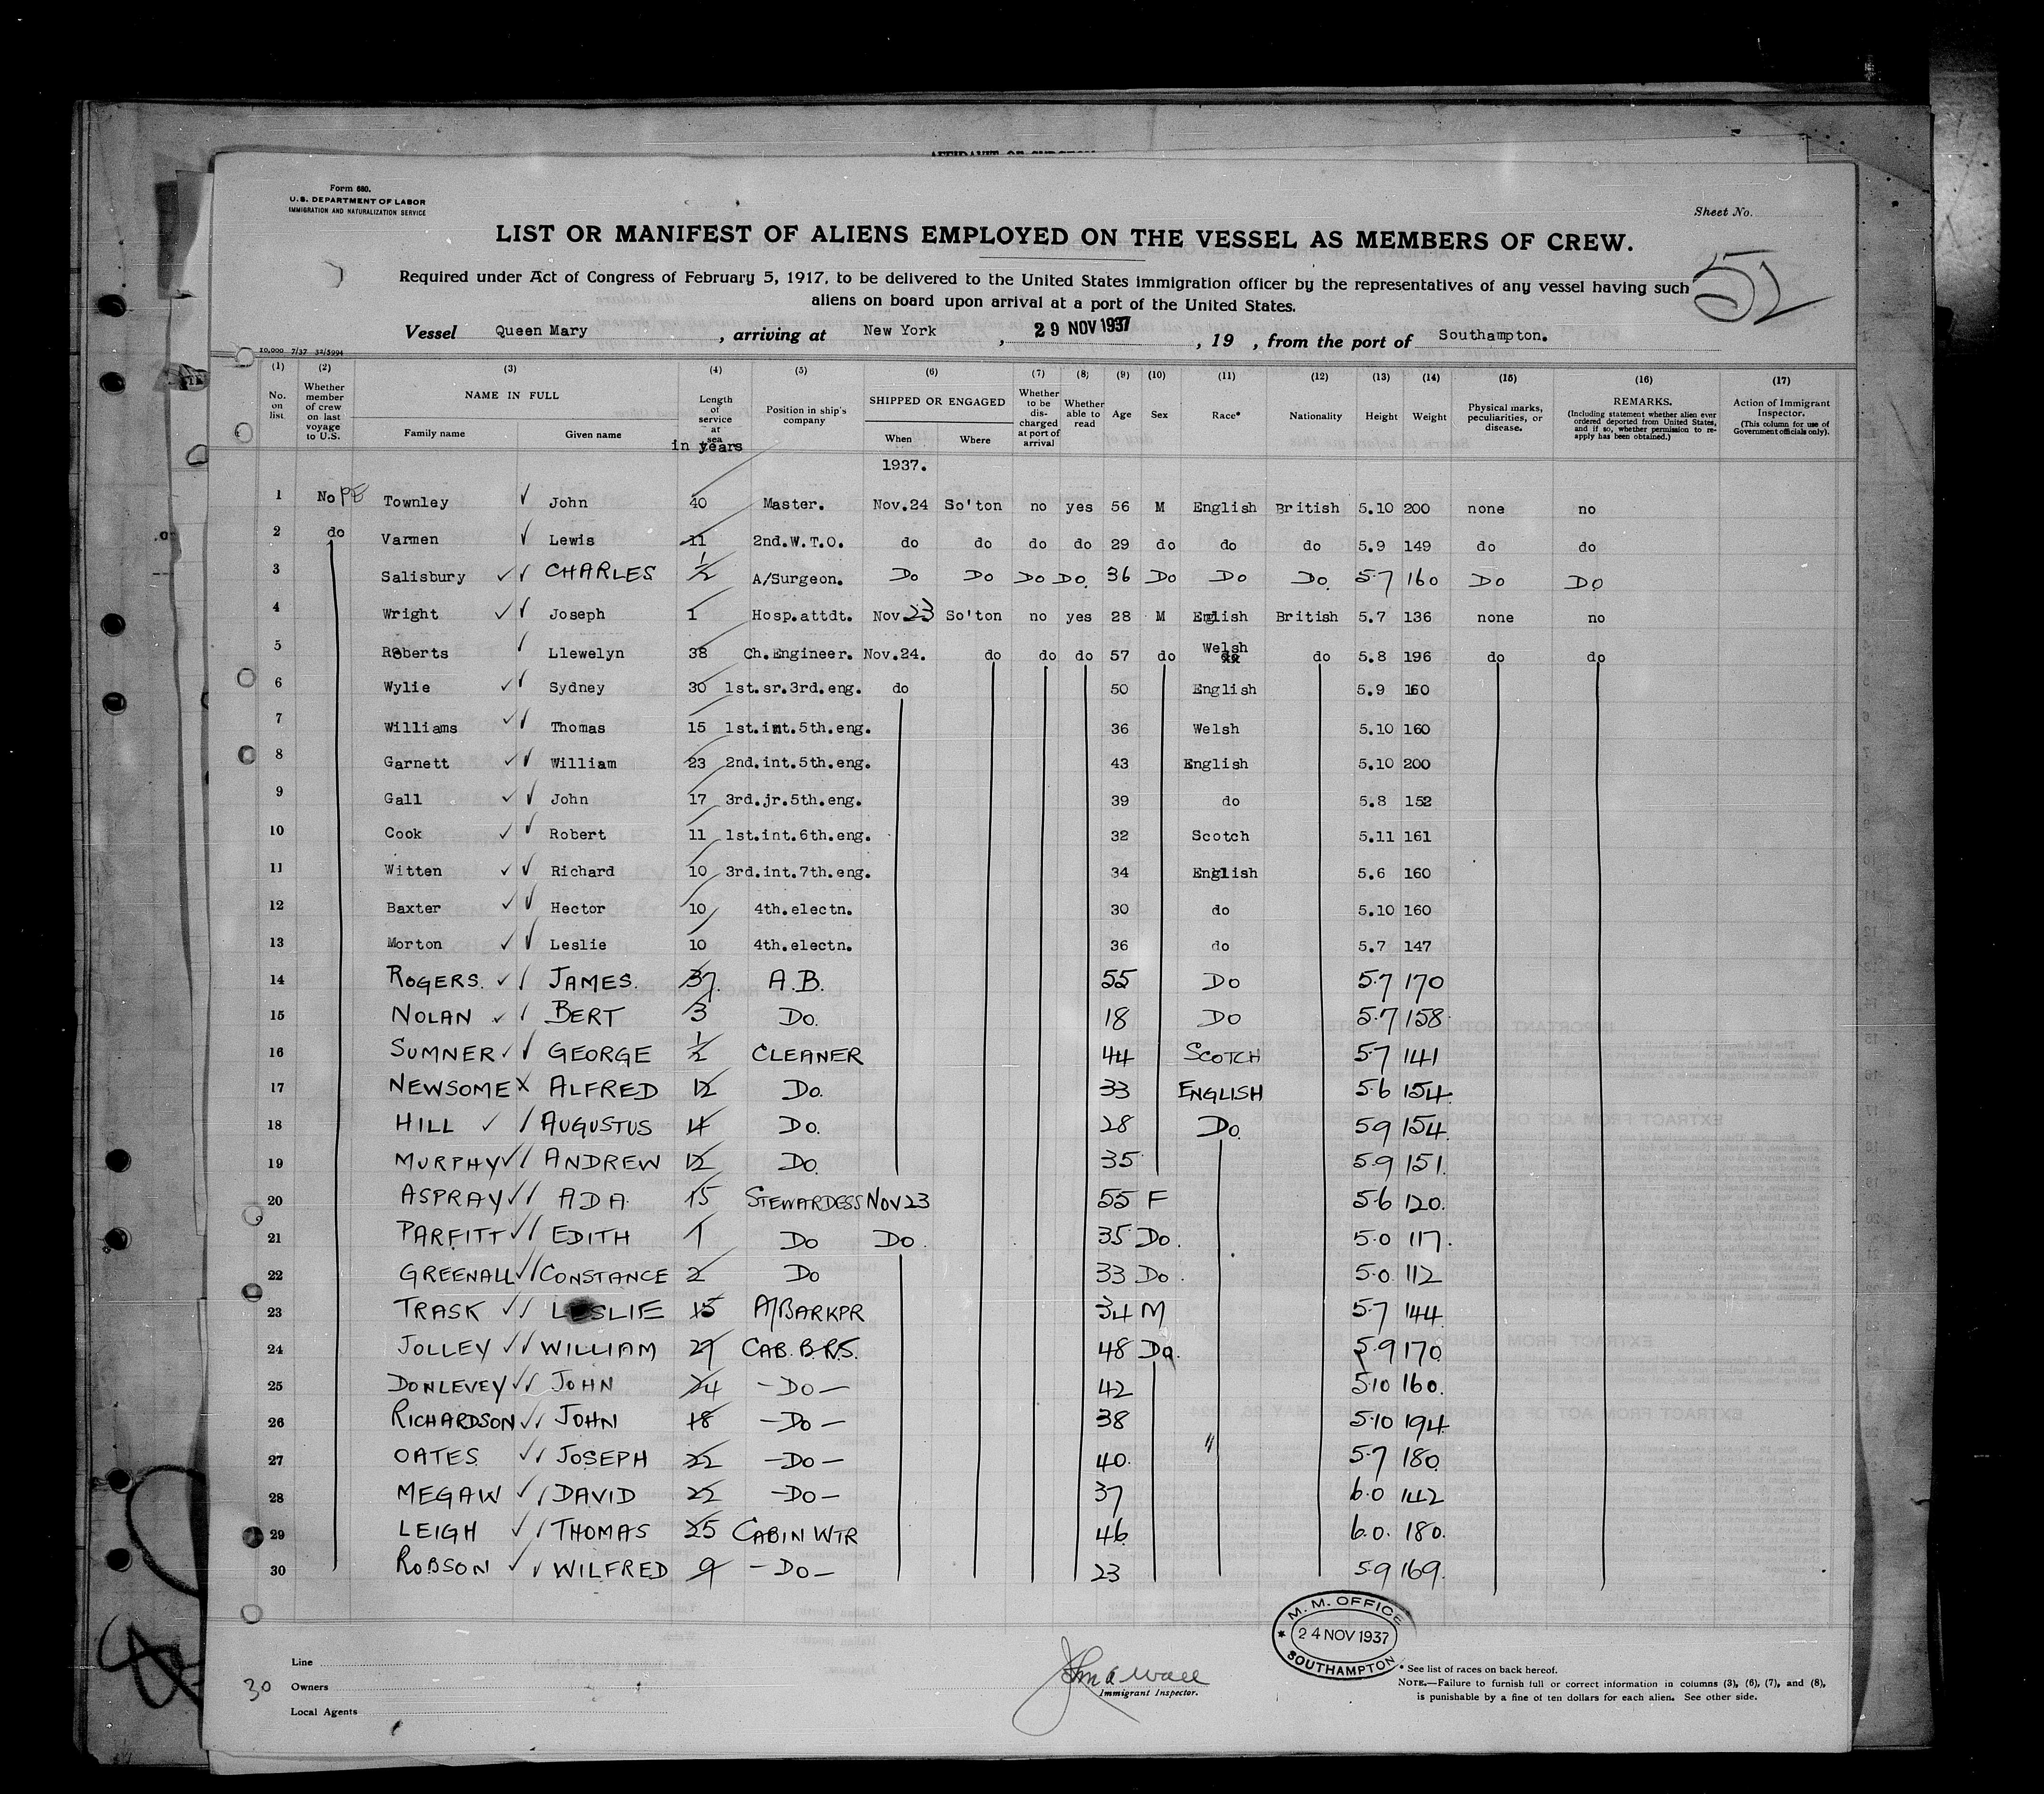 Form 680.
U.S. DEPARTMENT OF LABOR
IMMIGRATION AND NATURALIZATION SERVICE
Sheet No.
52
LIST OR MANIFEST OF ALIENS EMPLOYED ON THE VESSEL AS MEMBERS OF CREW.
Required under Act of Congress of February 5, 1917, to be delivered to the United States immigration officer by the representatives of any vessel having such
aliens on board upon arrival at a port of the United States.
Vessel Queen Mary, arriving at New York, 29 NOV 1937, 19 , from the port of Southampton.
10,000 7/37 32/5994
(1) (2) (3) (4) (5) (6) (7) (8) (9) (10) (11) (12) (13) (14) (15) (16) (17)
No. on list
Whether member of crew on last voyage to U.S.
NAME IN FULL
Family name Given name
Length of service at sea in years
Position in ship's company
SHIPPED OR ENGAGED
When Where
Whether to be discharged at port of arrival
Whether able to read
Age Sex Race* Nationality Height Weight
Physical marks, peculiarities, or disease.
REMARKS.
(Including statement whether alien ever ordered deported from United States, and if so, whether permission to re-apply has been obtained.)
Action of Immigrant Inspector.
(This column for use of Government officials only).
1937.
1 No PE Townley John 40 Master. Nov.24 So'ton no yes 56 M English British 5.10 200 none no
2 do Varmen Lewis 11 2nd.W.T.O. do do do do 29 do do do 5.9 149 do do
3 Salisbury CHARLES 1/2 A/Surgeon. Do Do Do Do. 36 Do Do Do. 5.7 160 Do Do
4 Wright Joseph 1 Hosp.attdt. Nov 23 So'ton no yes 28 M English British 5.7 136 none no
5 Roberts Llewelyn 38 Ch.Engineer. Nov.24. do do do 57 do Welsh do 5.8 196 do do
6 Wylie Sydney 30 1st.sr.3rd.eng. do 50 English 5.9 160
7 Williams Thomas 15 1st.int.5th.eng. 36 Welsh 5.10 160
8 Garnett William 23 2nd.int.5th.eng. 43 English 5.10 200
9 Gall John 17 3rd.jr.5th.eng. 39 do 5.8 152
10 Cook Robert 11 1st.int.6th.eng. 32 Scotch 5.11 161
11 Witten Richard 10 3rd.int.7th.eng. 34 English 5.6 160
12 Baxter Hector 10 4th.electn. 30 do 5.10 160
13 Morton Leslie 10 4th.electn. 36 do 5.7 147
14 ROGERS. JAMES. 37. A.B. 55 Do 5.7 170
15 NOLAN BERT 3 Do. 18 Do 5.7 158
16 SUMNER GEORGE 1/2 CLEANER 44 SCOTCH 5.7 141
17 NEWSOME ALFRED 12 Do. 33 ENGLISH 5.6 154.
18 HILL AUGUSTUS 4 Do. 28 Do. 5.9 154.
19 MURPHY ANDREW 12 Do. 35 5.9 151.
20 ASPRAY ADA 15 STEWARDESS NOV 23 55 F 5.6 120.
21 PARFITT EDITH 1 Do Do. 35 Do. 5.0 117.
22 GREENALL CONSTANCE 2 Do 33 Do. 5.0 112
23 TRASK LESLIE 15 A/BARKPR 34 M 5.7 144.
24 JOLLEY WILLIAM 29 CAB. B.R.S. 48 Do. 5.9 170.
25 DONLEVEY JOHN 24 -Do- 42 5.10 160.
26 RICHARDSON JOHN 18 -Do- 38 5.10 194.
27 OATES JOSEPH 22 -Do- 40. " 5.7 180.
28 MEGAW DAVID 22 -Do- 37 6.0 142
29 LEIGH THOMAS 25 CABIN WTR 46. 6.0. 180.
30 ROBSON WILFRED 9 -Do- 23 5.9 169.
M. M. OFFICE
* 24 NOV 1937
SOUTHAMPTON
Line
30 Owners
Local Agents
Immigrant Inspector.
* See list of races on back hereof.
NOTE.—Failure to furnish full or correct information in columns (3), (6), (7), and (8),
is punishable by a fine of ten dollars for each alien. See other side.